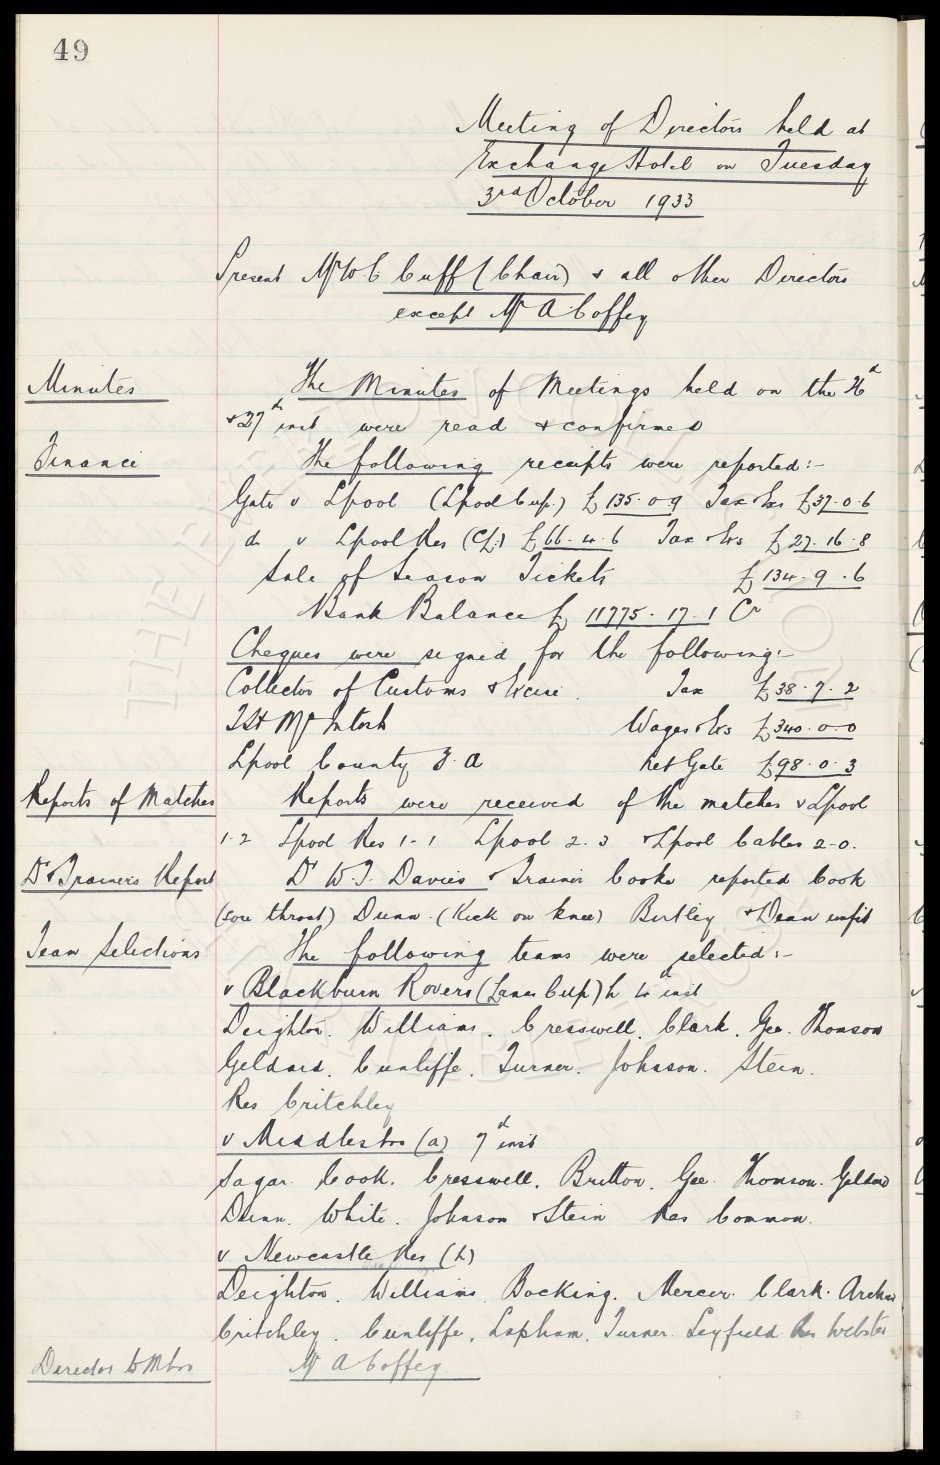 49
Meeting of Directors held at
Exchange Hotel on Tuesday
3rd October 1933
Present Mr W C Cuff (Chair) & all other Directors
except Mr A Coffey
Minutes
The Minutes of Meetings held on the 26th
& 27th inst were read & confirmed
Finance
The following receipts were reported:-
Gate v Lpool (Lpool Cup.) £135.0.9 Tax &c £37.0.6
do v Lpool Res (CL) £66.4.6 Tax &c £27.16.8
Sale of Season Tickets £134.9.6
Bank Balance £11775.17.1 Cr
Cheques were signed for the following:-
Collector of Customs & Excise. Tax £38.7.2
T H McIntosh Wages &c £340.0.0
Lpool County F.A Net Gate £98.0.3
Reports of Matches
Reports were received of the matches v Lpool
1-2 Lpool Res 1-1 Lpool 2-3 & Lpool Cables 2-0.
Dr & Trainers Report
Dr W.J. Davies & Trainer Cooke reported Cook
(sore throat) Dunn (Kick on knee) Birtley & Dean unfit
Team Selections
The following teams were selected:-
v Blackburn Rovers (Lancs Cup) h 4th inst
Deighton. Williams. Cresswell. Clark. Gee. Thomson
Geldard. Cunliffe. Turner. Johnson. Stein.
Res Critchley
v Middlesbro (a) 7th inst
Sagar. Cook. Cresswell. Britton. Gee. Thomson. Geldard
Dunn. White. Johnson & Stein Res Common.
v Newcastle Res (h)
Deighton. Williams. Bocking. Mercer. Clark. Archer
Critchley. Cunliffe. Lapham. Turner. Leyfield Res Webster
Director to Mbro
Mr A Coffey